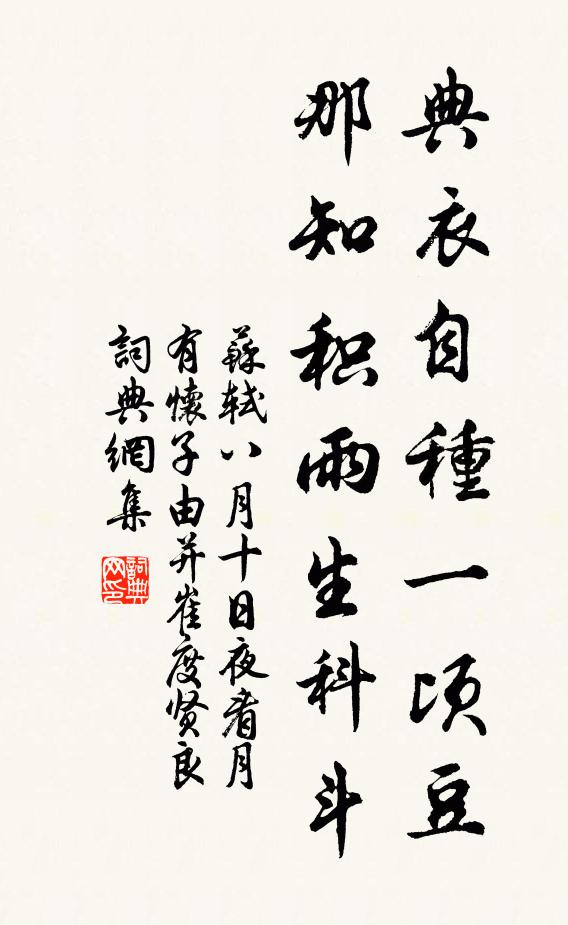 典衣自種一頃豆
那知积雨生科斗
蘇轼八月十日夜看月
有懷子由并崔度贤良
詞典網集
詞典网印